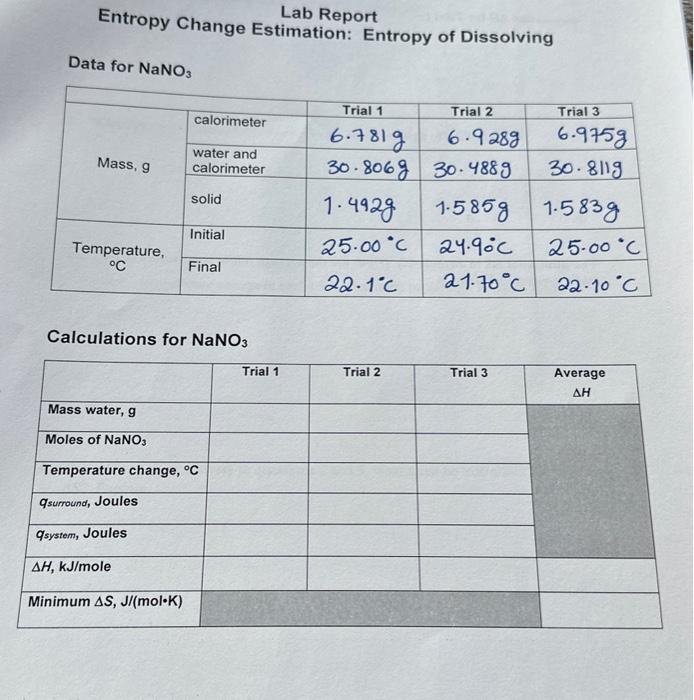 Lab Report
Entropy Change Estimation: Entropy of Dissolving
Data for NaNO₃
Trial 1 Trial 2 Trial 3
Mass, g
calorimeter 6.781g 6.928g 6.975g
water and calorimeter 30.806g 30.488g 30.811g
solid 1.492g 1.585g 1.583g
Temperature, °C
Initial 25.00°C 24.90°C 25.00°C
Final 22.1°C 21.70°C 22.10°C
Calculations for NaNO₃
Trial 1 Trial 2 Trial 3 Average ΔH
Mass water, g
Moles of NaNO₃
Temperature change, °C
qsurround, Joules
qsystem, Joules
ΔH, kJ/mole
Minimum ΔS, J/(mol•K)